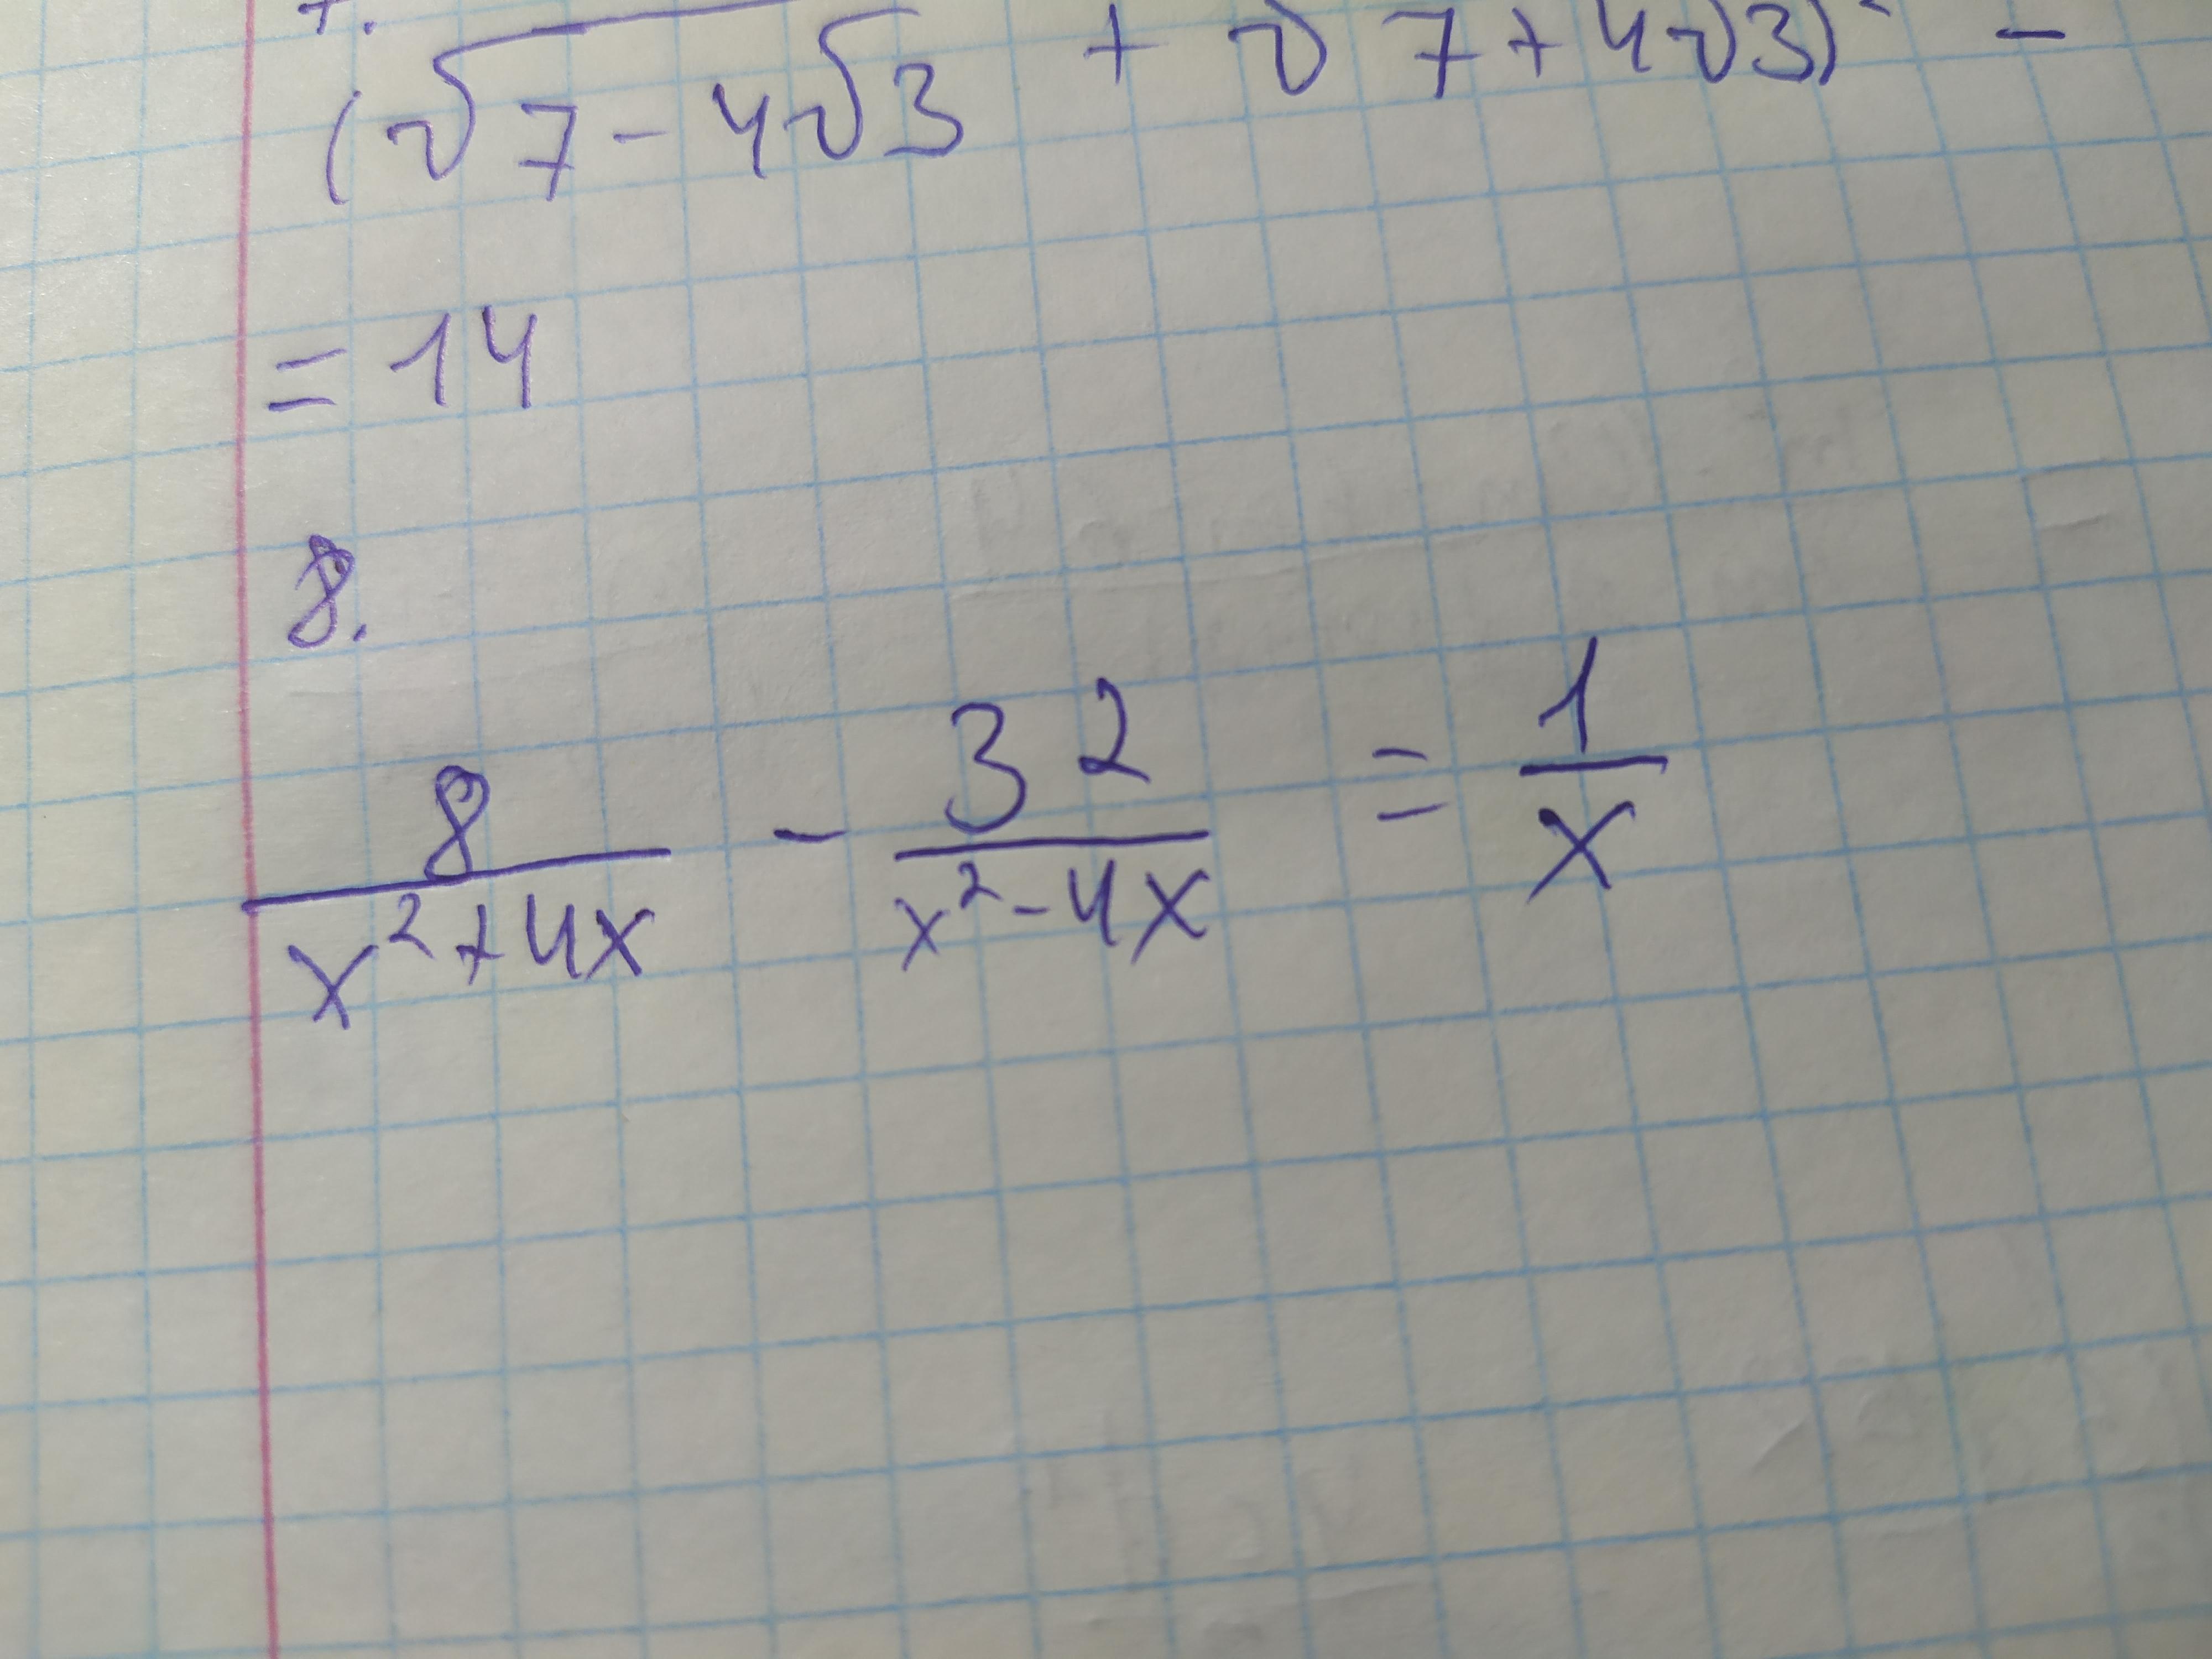 7.
(√7-4√3 + √7+4√3)² -
=14
8.
8/(x²+4x) - 32/(x²-4x) = 1/x